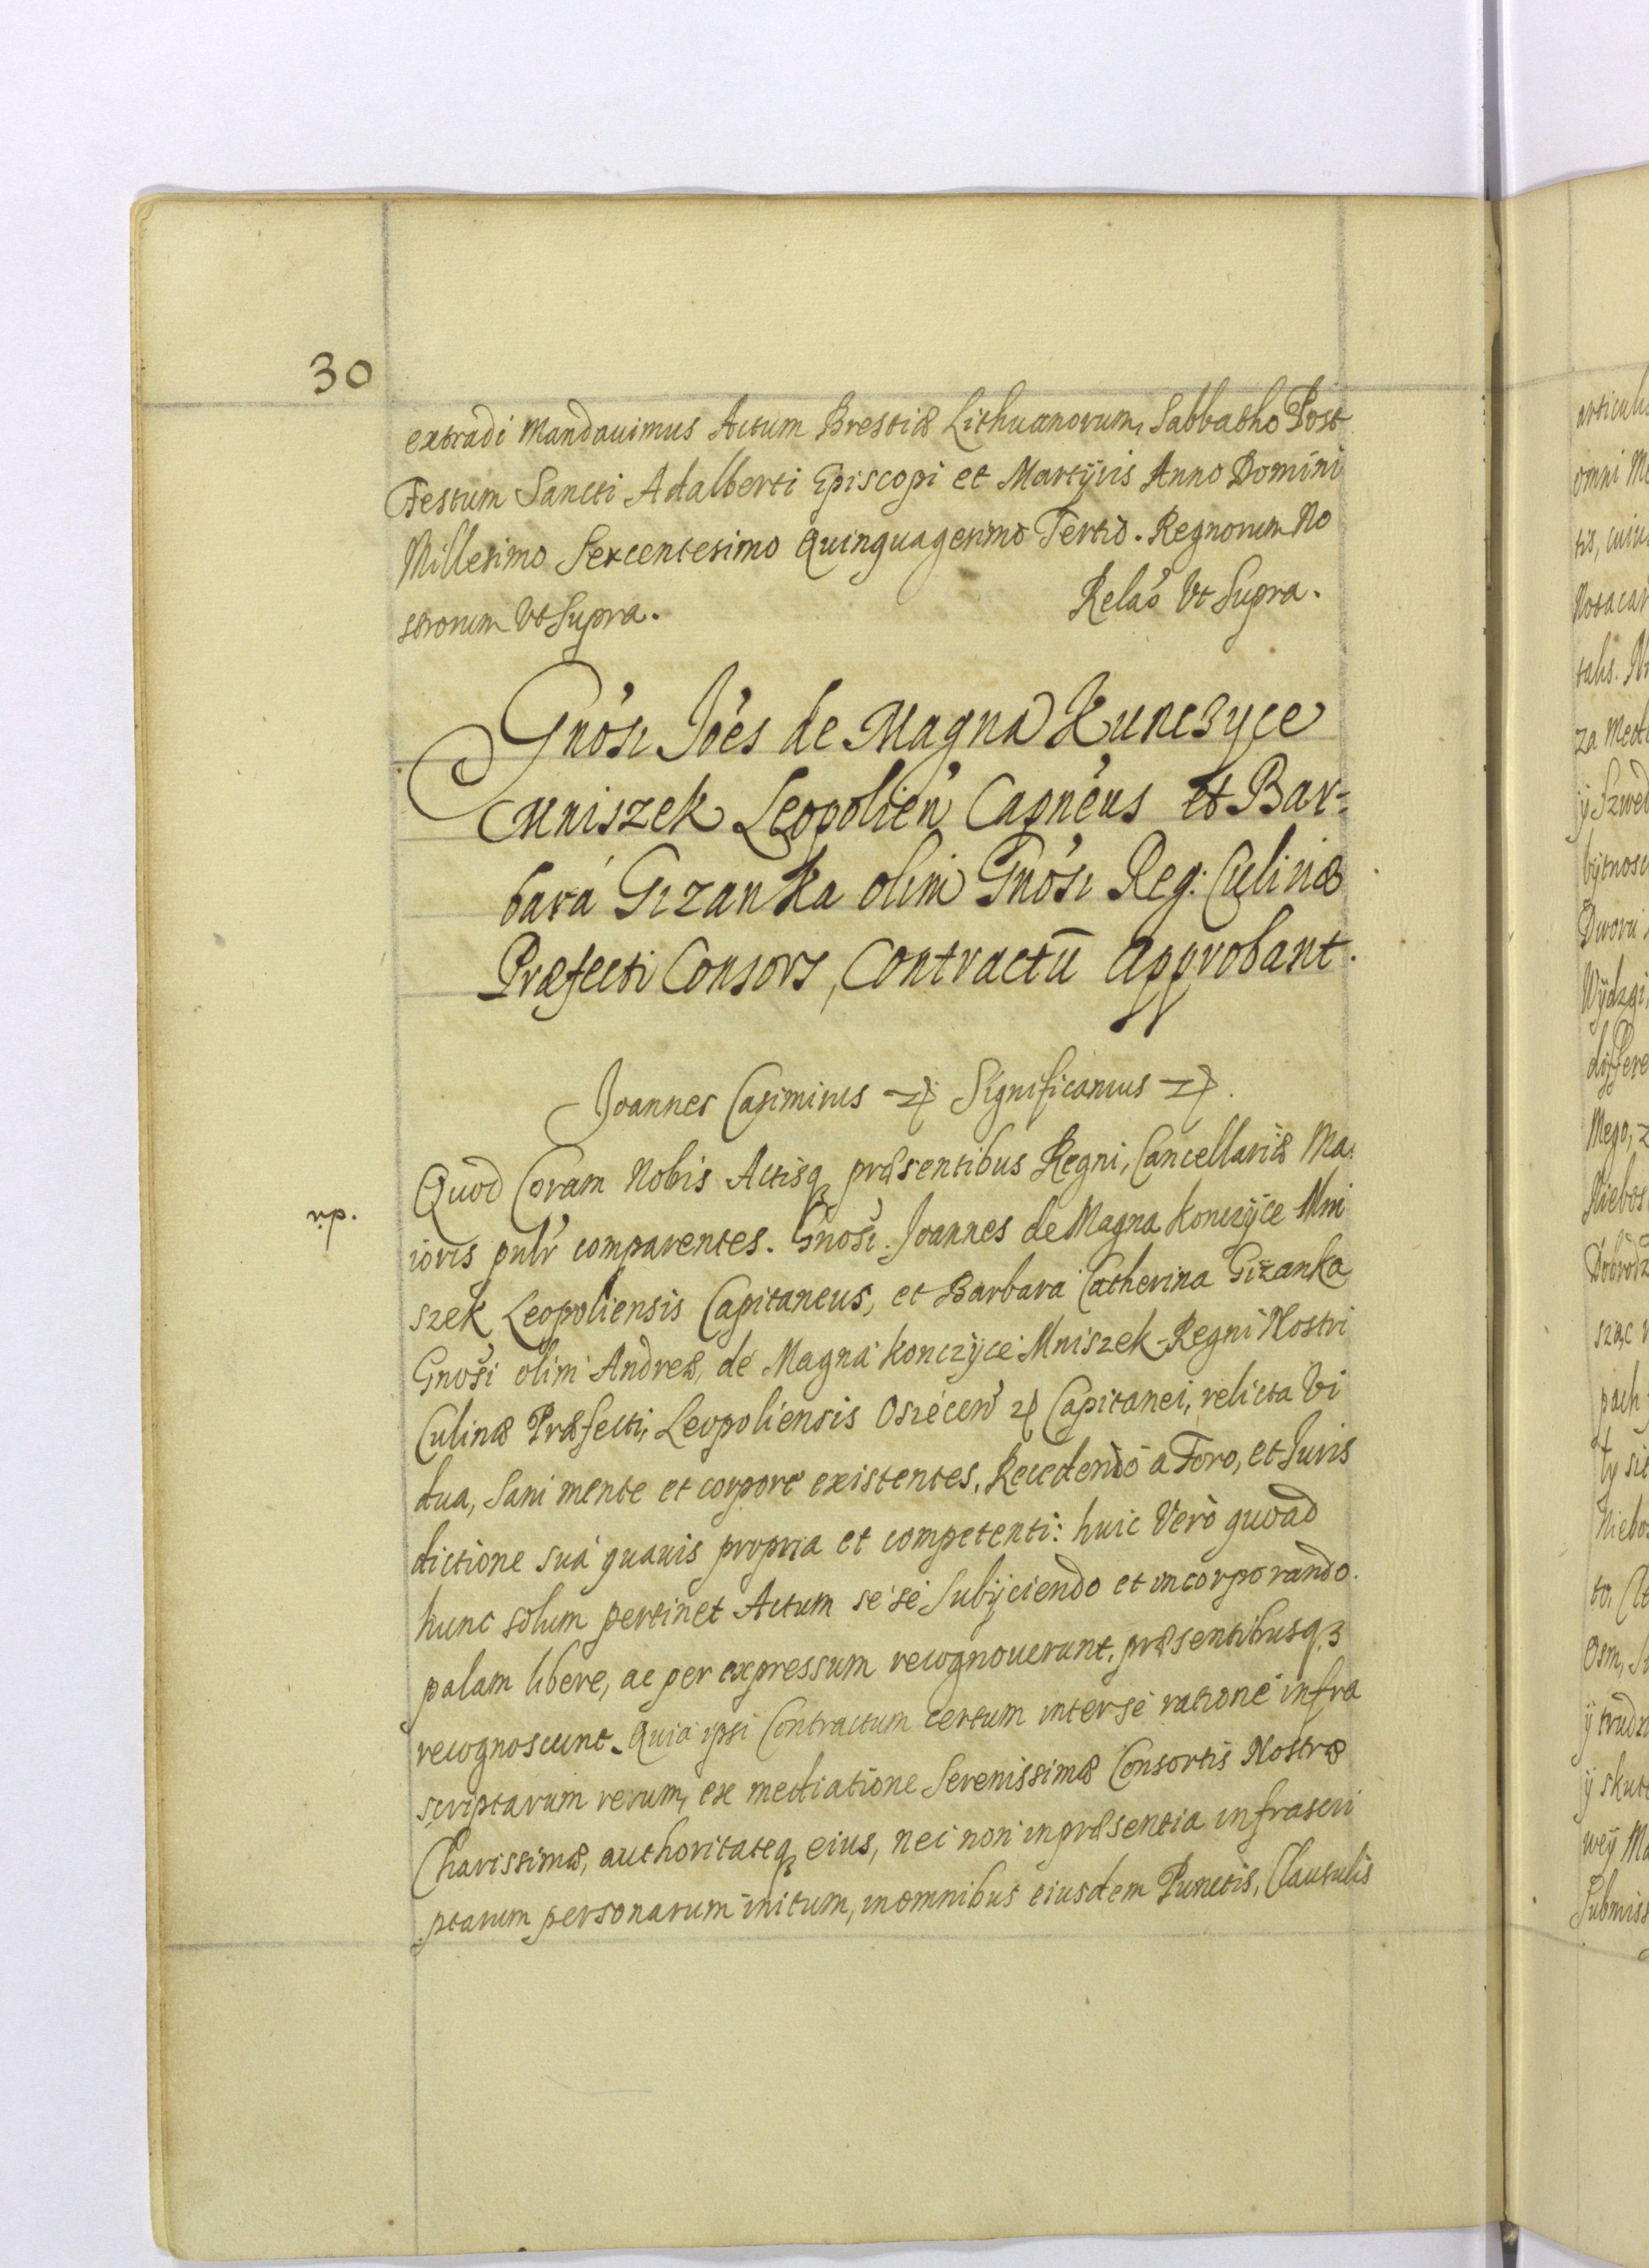 30
extradi Mandauimus Actum Brestiæ Lithuanorum, Sabbatho Post
Festum Sancti Adalberti Episcopi et Martÿris Anno Domini
Millesimo Sexcentesimo Quinquagesimo Tertio. Regnorum No
strorum Vt Supra. Relao Vt Supra.
Gnosi Joes de Magna Kunczyce
Mniszek Leopolien Capneus et Bar-
bara Gizanka olim Gnosi Reg: Culinæ
Præfecti Consors, Contractū approbant.
Joannes Casimirus Significamus
Quod Coram Nobis Actisq præsentibus Regni, Cancellariæ Ma
r.p.
ioris pulr comparentes. Gnosi. Joannes de Magna Konczÿce Mni
szek Leopoliensis Capitaneus, et Barbara Catherina Giżanka
Gnosi olim Andreæ, de Magna Konczÿce Mniszek Regni Nostri
Culinæ Præfecti, Leopoliensis Osiecen Capitanei, relicta Vi
dua, Sani mente et corpore existentes, Recedendo a Foro, et Juris
dictione sua quauis propria et competenti: huic Vero quoad
hunc solum pertinet Actum se se Subÿciendo et incorporando.
palam libere, ac per expressum recognouerunt, præsentibusqꝫ
recognoscunt. Quia ipsi Contractum certum inter se ratione infra
scriptarum rerum, ex mediatione Serenissimæ Consortis Nostræ
Charissimæ, authoritateq eius, nec non in præsentia infrascri
ptarum personarum initum, in omnibus eiusdem Punctis, Clausulis